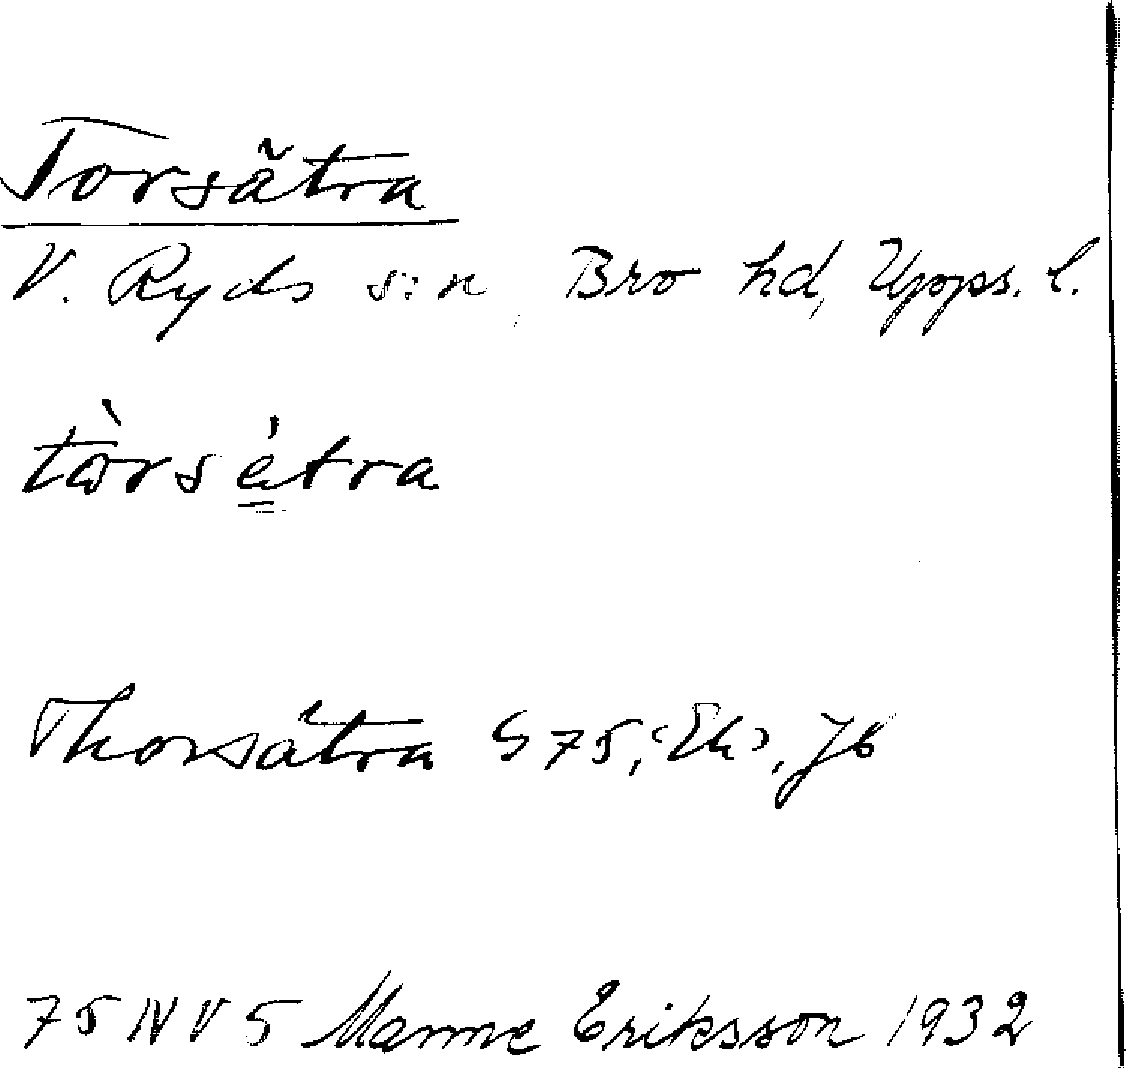 Torsätra
V. Ryds s:n, Bro hd, Upps. l.
tòrsétra
Thorsätra G 75, (Ek), Jb
75 NV 5 Manne Eriksson 1932